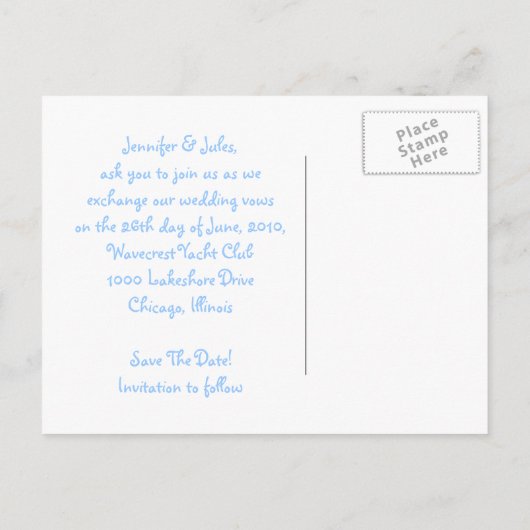 Jennifer & Jules,
ask you to join us as we
exchange our wedding vows
on the 26th day of June, 2010,
Wavecrest Yacht Club
1000 Lakeshore Drive
Chicago, Illinois
Save The Date!
Invitation to follow
Place
Stamp
Here